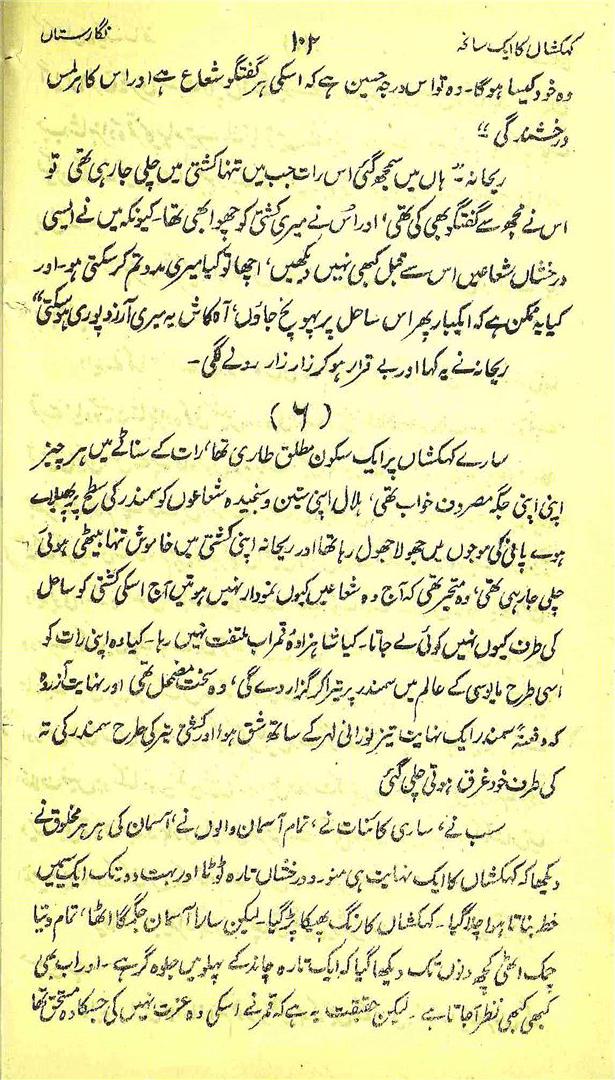 کہکشاں کا ایک سانحہ ۱۰۲ نگارستاں
وہ خود کیسا ہوگا۔ وہ تو اس درجہ حسین ہے کہ اسکی ہر گفتگو شعاع ہے اور اس کا ہر لمس
درخشندگی ؛؛
ریحانہ۔" ہاں میں سمجھ گئی اس رات جب میں تنہا کشتی میں چلی جا رہی تھی تو
اس نے مجھ سے گفتگو بھی کی تھی، اور اُس نے میری کشتی کو چھوا بھی تھا۔ کیونکہ میں نے ایسی
درخشاں شعاعیں اس سے قبل کبھی نہیں دیکھیں، اچھا تو کیا میری مدد تم کر سکتی ہو۔ اور
کیا یہ ممکن ہے کہ ایکبار پھر اس ساحل پر پہونچ جاؤں، آہ کاش یہ میری آرزو پوری ہو سکتی"
ریحانہ نے یہ کہا اور بے قرار ہو کر زار زار رونے لگی۔
(۶)
سارے کہکشاں پر ایک سکون مطلق طاری تھا، رات کے سناٹے میں ہر چیز
اپنی اپنی جگہ مصروف خواب تھی، ہلال اپنی متین و سنجیدہ شعاعوں کو سمندر کی سطح پر پھیلائے
ہوے پانی کی موجوں میں جھولا جھول رہا تھا اور ریحانہ اپنی کشتی میں خاموش تنہا بیٹھی ہوئی
چلی جا رہی تھی، وہ متحیر تھی کہ آج وہ شعاعیں کیوں نمودار نہیں ہوتیں آج اسکی کشتی کو ساحل
کی طرف کیوں نہیں کوئی لے جاتا۔ کیا شاہزادہ قمر اب ملتفت نہیں رہا۔ کیا وہ اپنی رات کو
اسی طرح مایوسی کے عالم میں سمندر پر تیرا کر گزار دے گی، وہ سخت مضمحل تھی اور نہایت آزردہ
کہ دفعۃً سمندر ایک نہایت تیز نورانی لہر کے ساتھ شق ہوا اور کشتی تیر کی طرح سمندر کی تہ
کی طرف خود غرق ہوتی چلی گئی
سب نے، ساری کائنات نے، تمام آسمان والوں نے، آسمان کی ہر ہر مخلوق نے
دیکھا کہ کہکشاں کا ایک نہایت ہی منور و درخشاں تارہ ٹوٹا اور بہت دور تک ایک سیمیں
خط بناتا ہوا چلا گیا۔ کہکشاں کا رنگ پھیکا پڑ گیا۔ لیکن سارا آسمان جگمگا اٹھا، تمام دنیا
چمک اٹھی کچھ دنوں تک دیکھا گیا کہ ایک تارہ چاند کے پہلو میں جلوہ گر ہے۔ اور اب بھی
کبھی کبھی نظر آ جاتا ہے۔ لیکن حقیقت یہ ہے کہ قمر نے اسکی وہ عزت نہیں کی جسکا وہ مستحق تھا